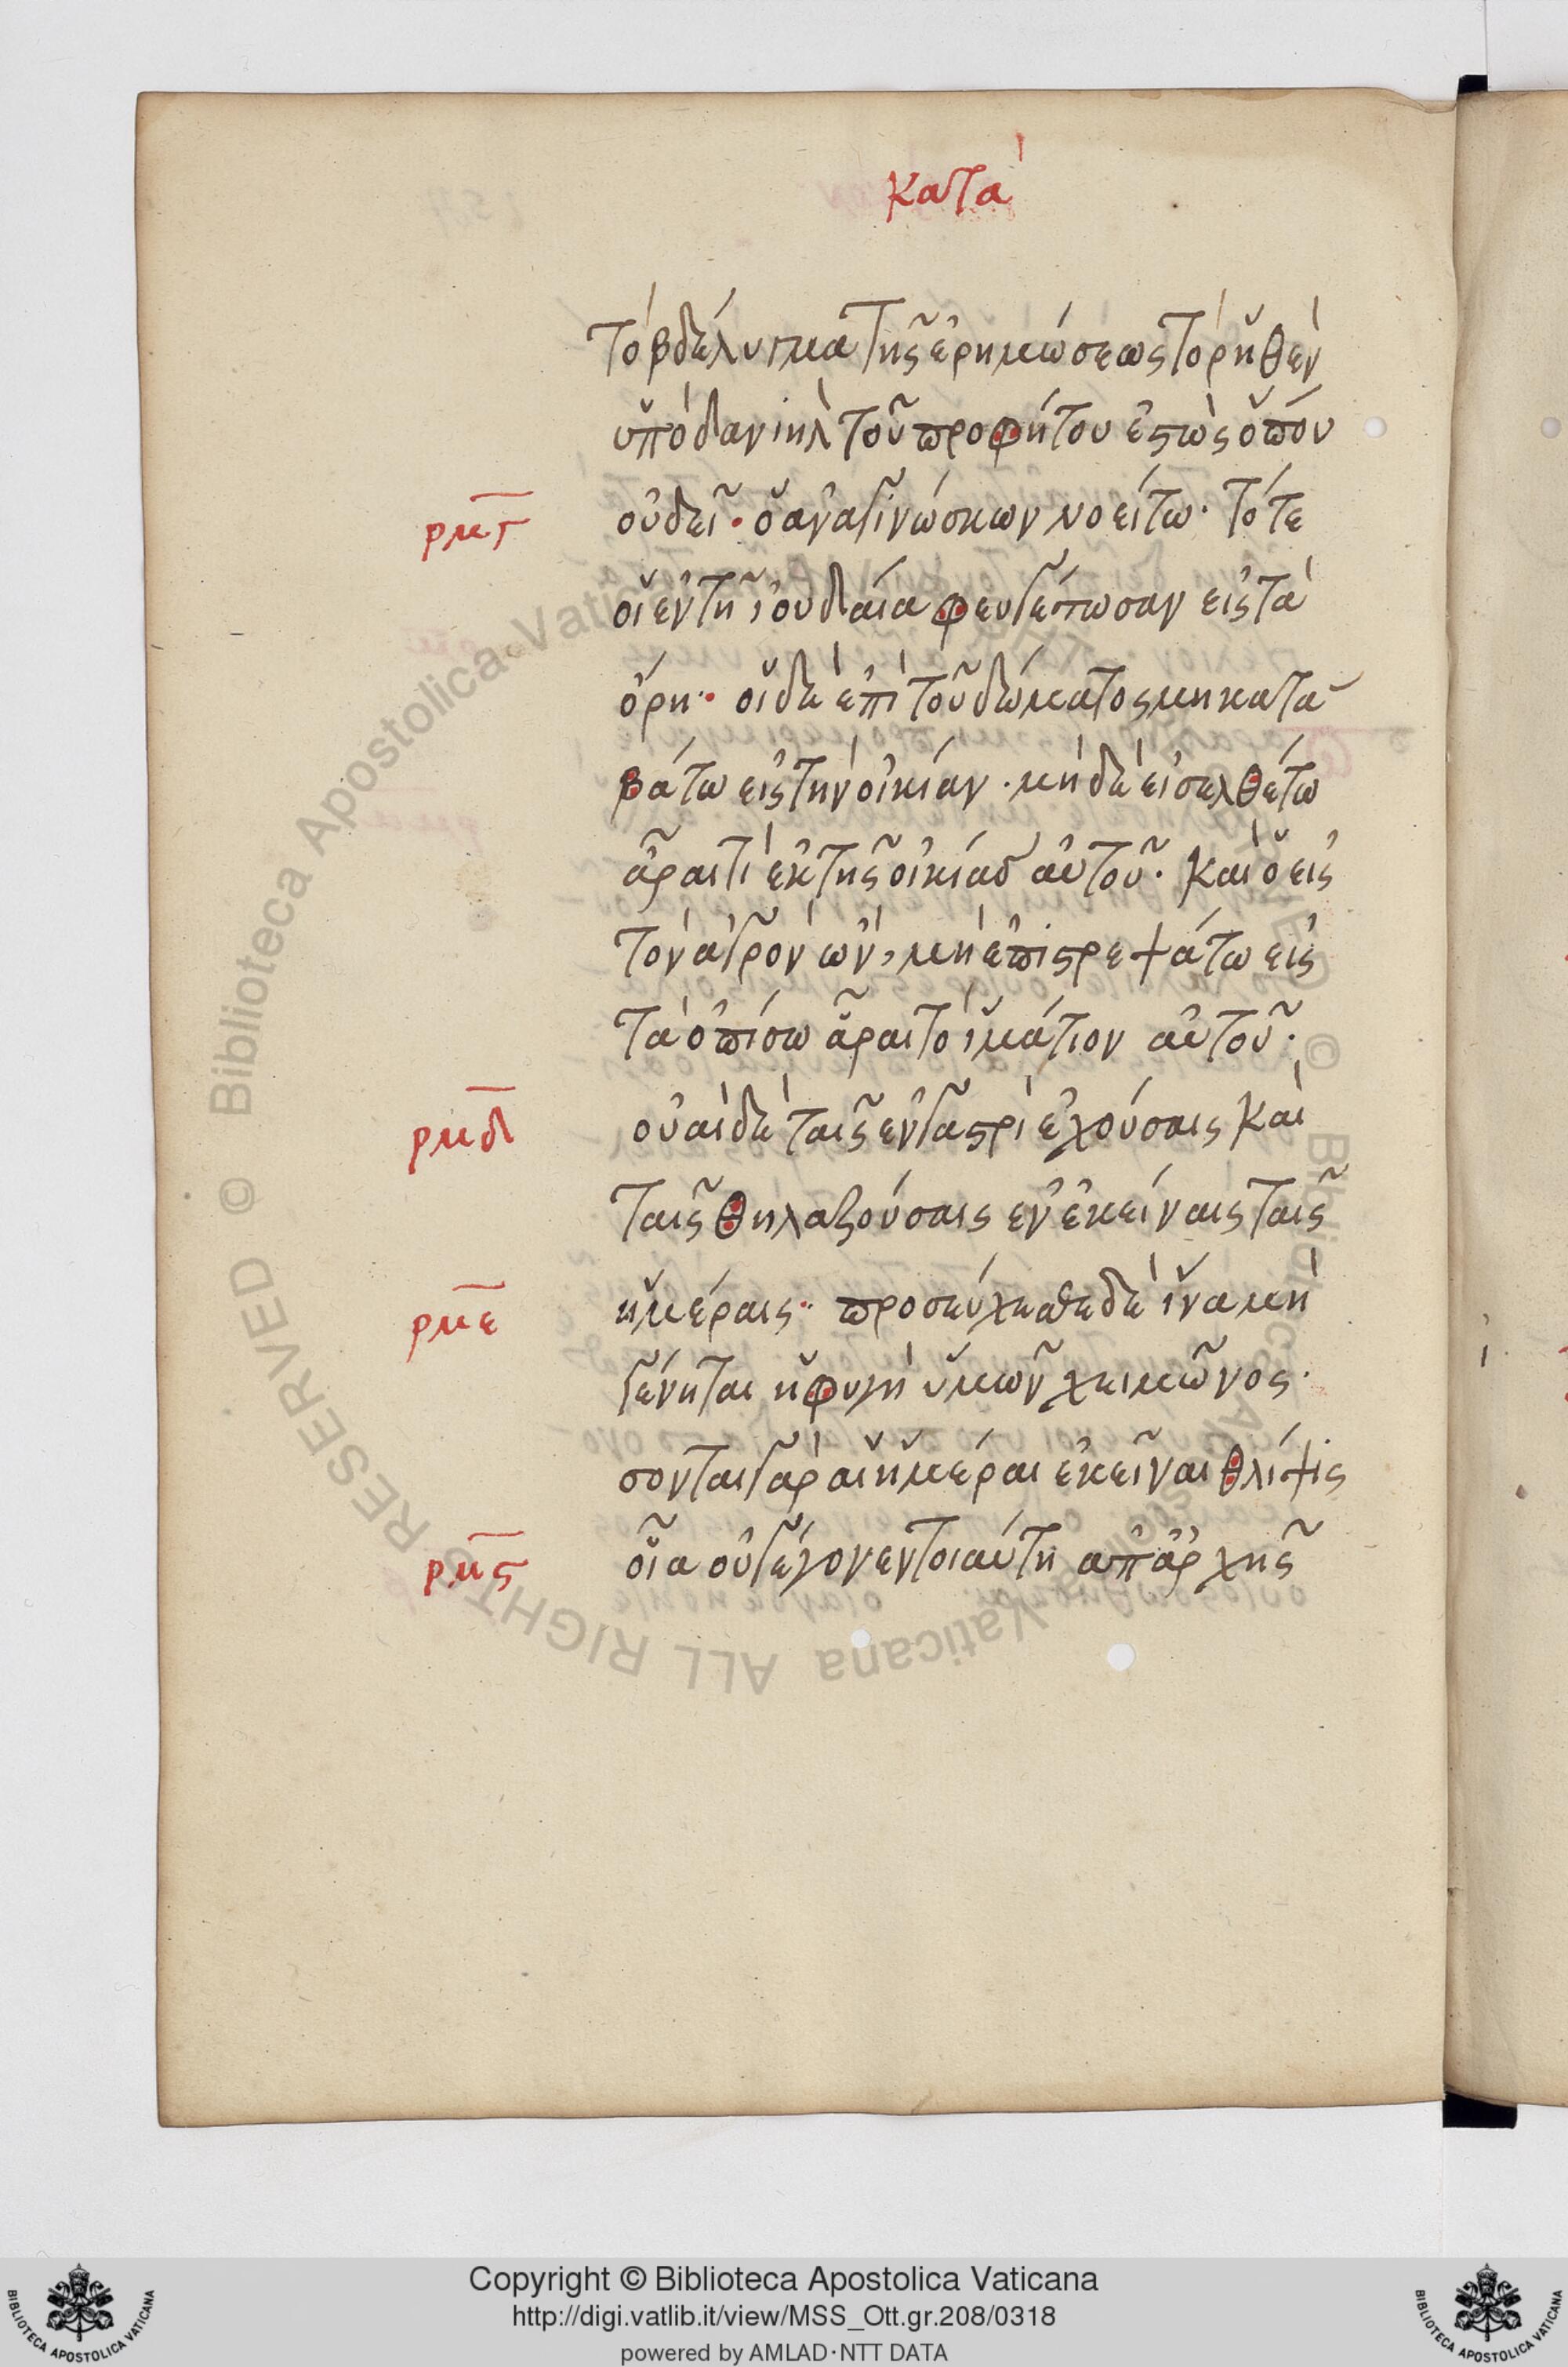 κατὰ
τὸ βδέλυγμα τῆς ἐρημώσεως τὸ ῥηθὲν
ὑπὸ δανιὴλ τοῦ προφήτου ἑστὼς ὅπόυ
οὐ δεῖ· ὁ ἀναγινώσκων νοείτω· τότε
ρμγ
οἱ ἐν τῆ ἰουδαία φευγέτωσαν εἰς τὰ
ὄρη· οἱ δὲ ἐπὶ τοῦ δώματος μὴ κατα
βάτω εἰς τὴν οἰκίαν· μὴ δὲ εἰσελθέτω
ἆραι τὶ ἐκ τῆς οἰκίας αὐτοῦ· καὶ ὁ εἰς
τὸν ἀγρὸν ὢν, μὴ ἐπιστρεψάτω εἰς
τὰ ὀπίσω ἆραι τὸ ἱμάτιον αὐτοῦ·
ρμδ
οὐαὶ δὲ ταῖς ἐν γαστρὶ ἐχούσαις καὶ
ταῖς θηλαζούσαις ἐν ἐκείναις ταῖς
ρμε
ἡμέραις· προσεύχεσθε δὲ ἵνα μὴ
γένηται ἡ φυγὴ ὑμῶν χειμῶνος·
σονται γὰρ αἱ ἡμέραι ἐκεῖναι θλίψις
ρμς
οἵα οὐ γέγονεν τοιαύτη ἀπ ἀρχῆς
© Biblioteca Apostolica Vaticana
© Biblioteca Apostolica Vaticana ALL RIGHTS RESERVED
Copyright © Biblioteca Apostolica Vaticana
http://digi.vatlib.it/view/MSS_Ott.gr.208/0318
powered by AMLAD·NTT DATA
BIBLIOTECA APOSTOLICA VATICANA
BIBLIOTECA APOSTOLICA VATICANA